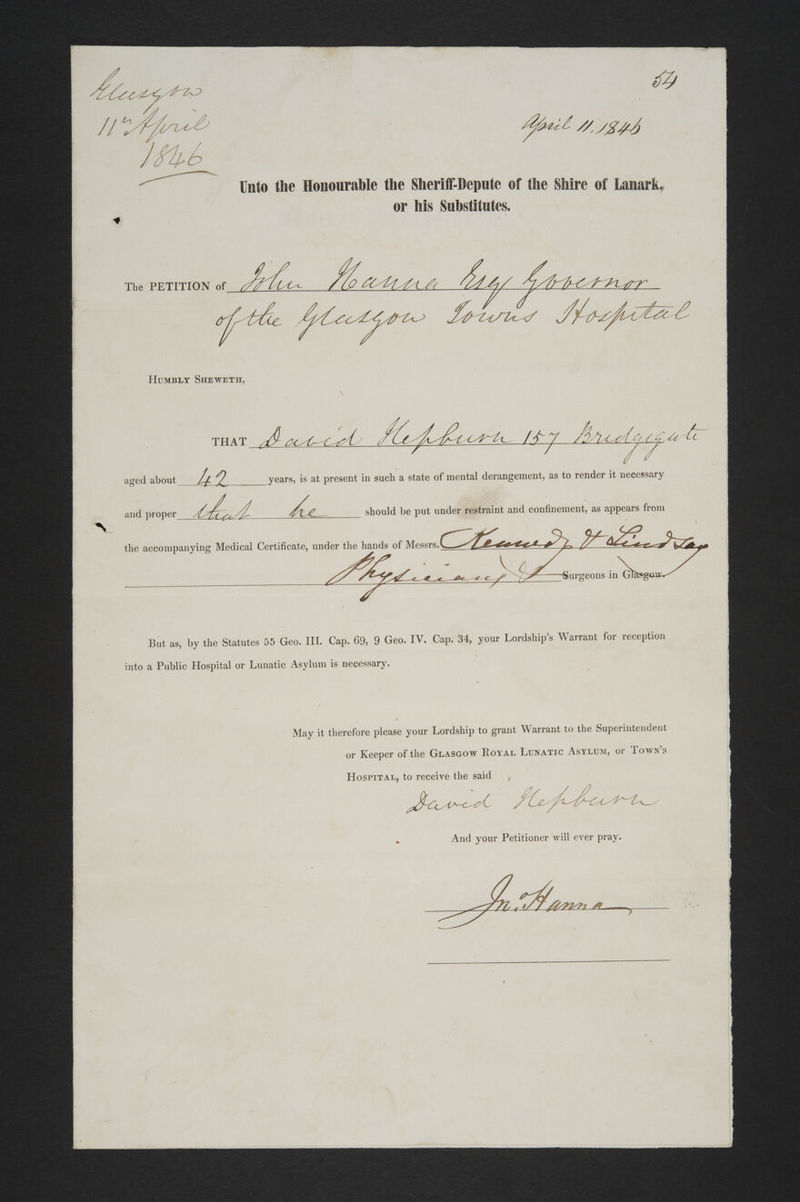 Glasgow
11th April
1846
54
April 11. 1846
Unto the Honourable the Sheriff-Depute of the Shire of Lanark,
or his Substitutes.
The PETITION of John Hanna Esqr Governor
of the Glasgow Towns Hospital
HUMBLY SHEWETH,
THAT David Hepburn 157 Bridgegate
aged about 42 years, is at present in such a state of mental derangement, as to render it necessary
and proper that he should be put under restraint and confinement, as appears from
the accompanying Medical Certificate, under the hands of Messrs. Kennedy & Lindsay
Physicians & Surgeons in Glasgow.
But as, by the Statutes 55 Geo. III. Cap. 69, 9 Geo. IV. Cap. 34, your Lordship's Warrant for reception
into a Public Hospital or Lunatic Asylum is necessary.
May it therefore please your Lordship to grant Warrant to the Superintendent
or Keeper of the GLASGOW ROYAL LUNATIC ASYLUM, or TOWN'S
HOSPITAL, to receive the said ,
David Hepburn
And your Petitioner will ever pray.
Jno. Hanna